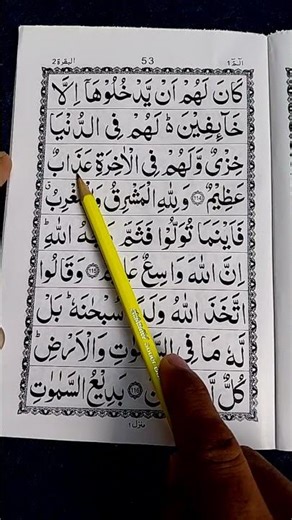 الٓمّٓ ١ 53 البقرة ٢
كَانَ لَهُمْ اَنْ يَّدْخُلُوْهَاۤ اِلَّا
خَآئِفِيْنَ ؕ لَهُمْ فِى الدُّنْيَا
خِزْىٌ وَّلَهُمْ فِى الْاٰخِرَةِ عَذَابٌ
عَظِيْمٌ ۝۱۱۴ وَلِلّٰهِ الْمَشْرِقُ
فَاَيْنَمَا تُوَلُّوْا فَثَمَّ اللّٰهِ ؕ
اِنَّ اللّٰهَ وَاسِعٌ ۝۱۱۵ وَقَالُوا
اتَّخَذَ اللّٰهُ سُبْحٰنَهٗ ؕ بَلْ
لَّهٗ مَا فِى وَالْاَرْضِ ؕ
كُلٌّ ۝۱۱۶ بَدِيْعُ السَّمٰوٰتِ
منزل ۱